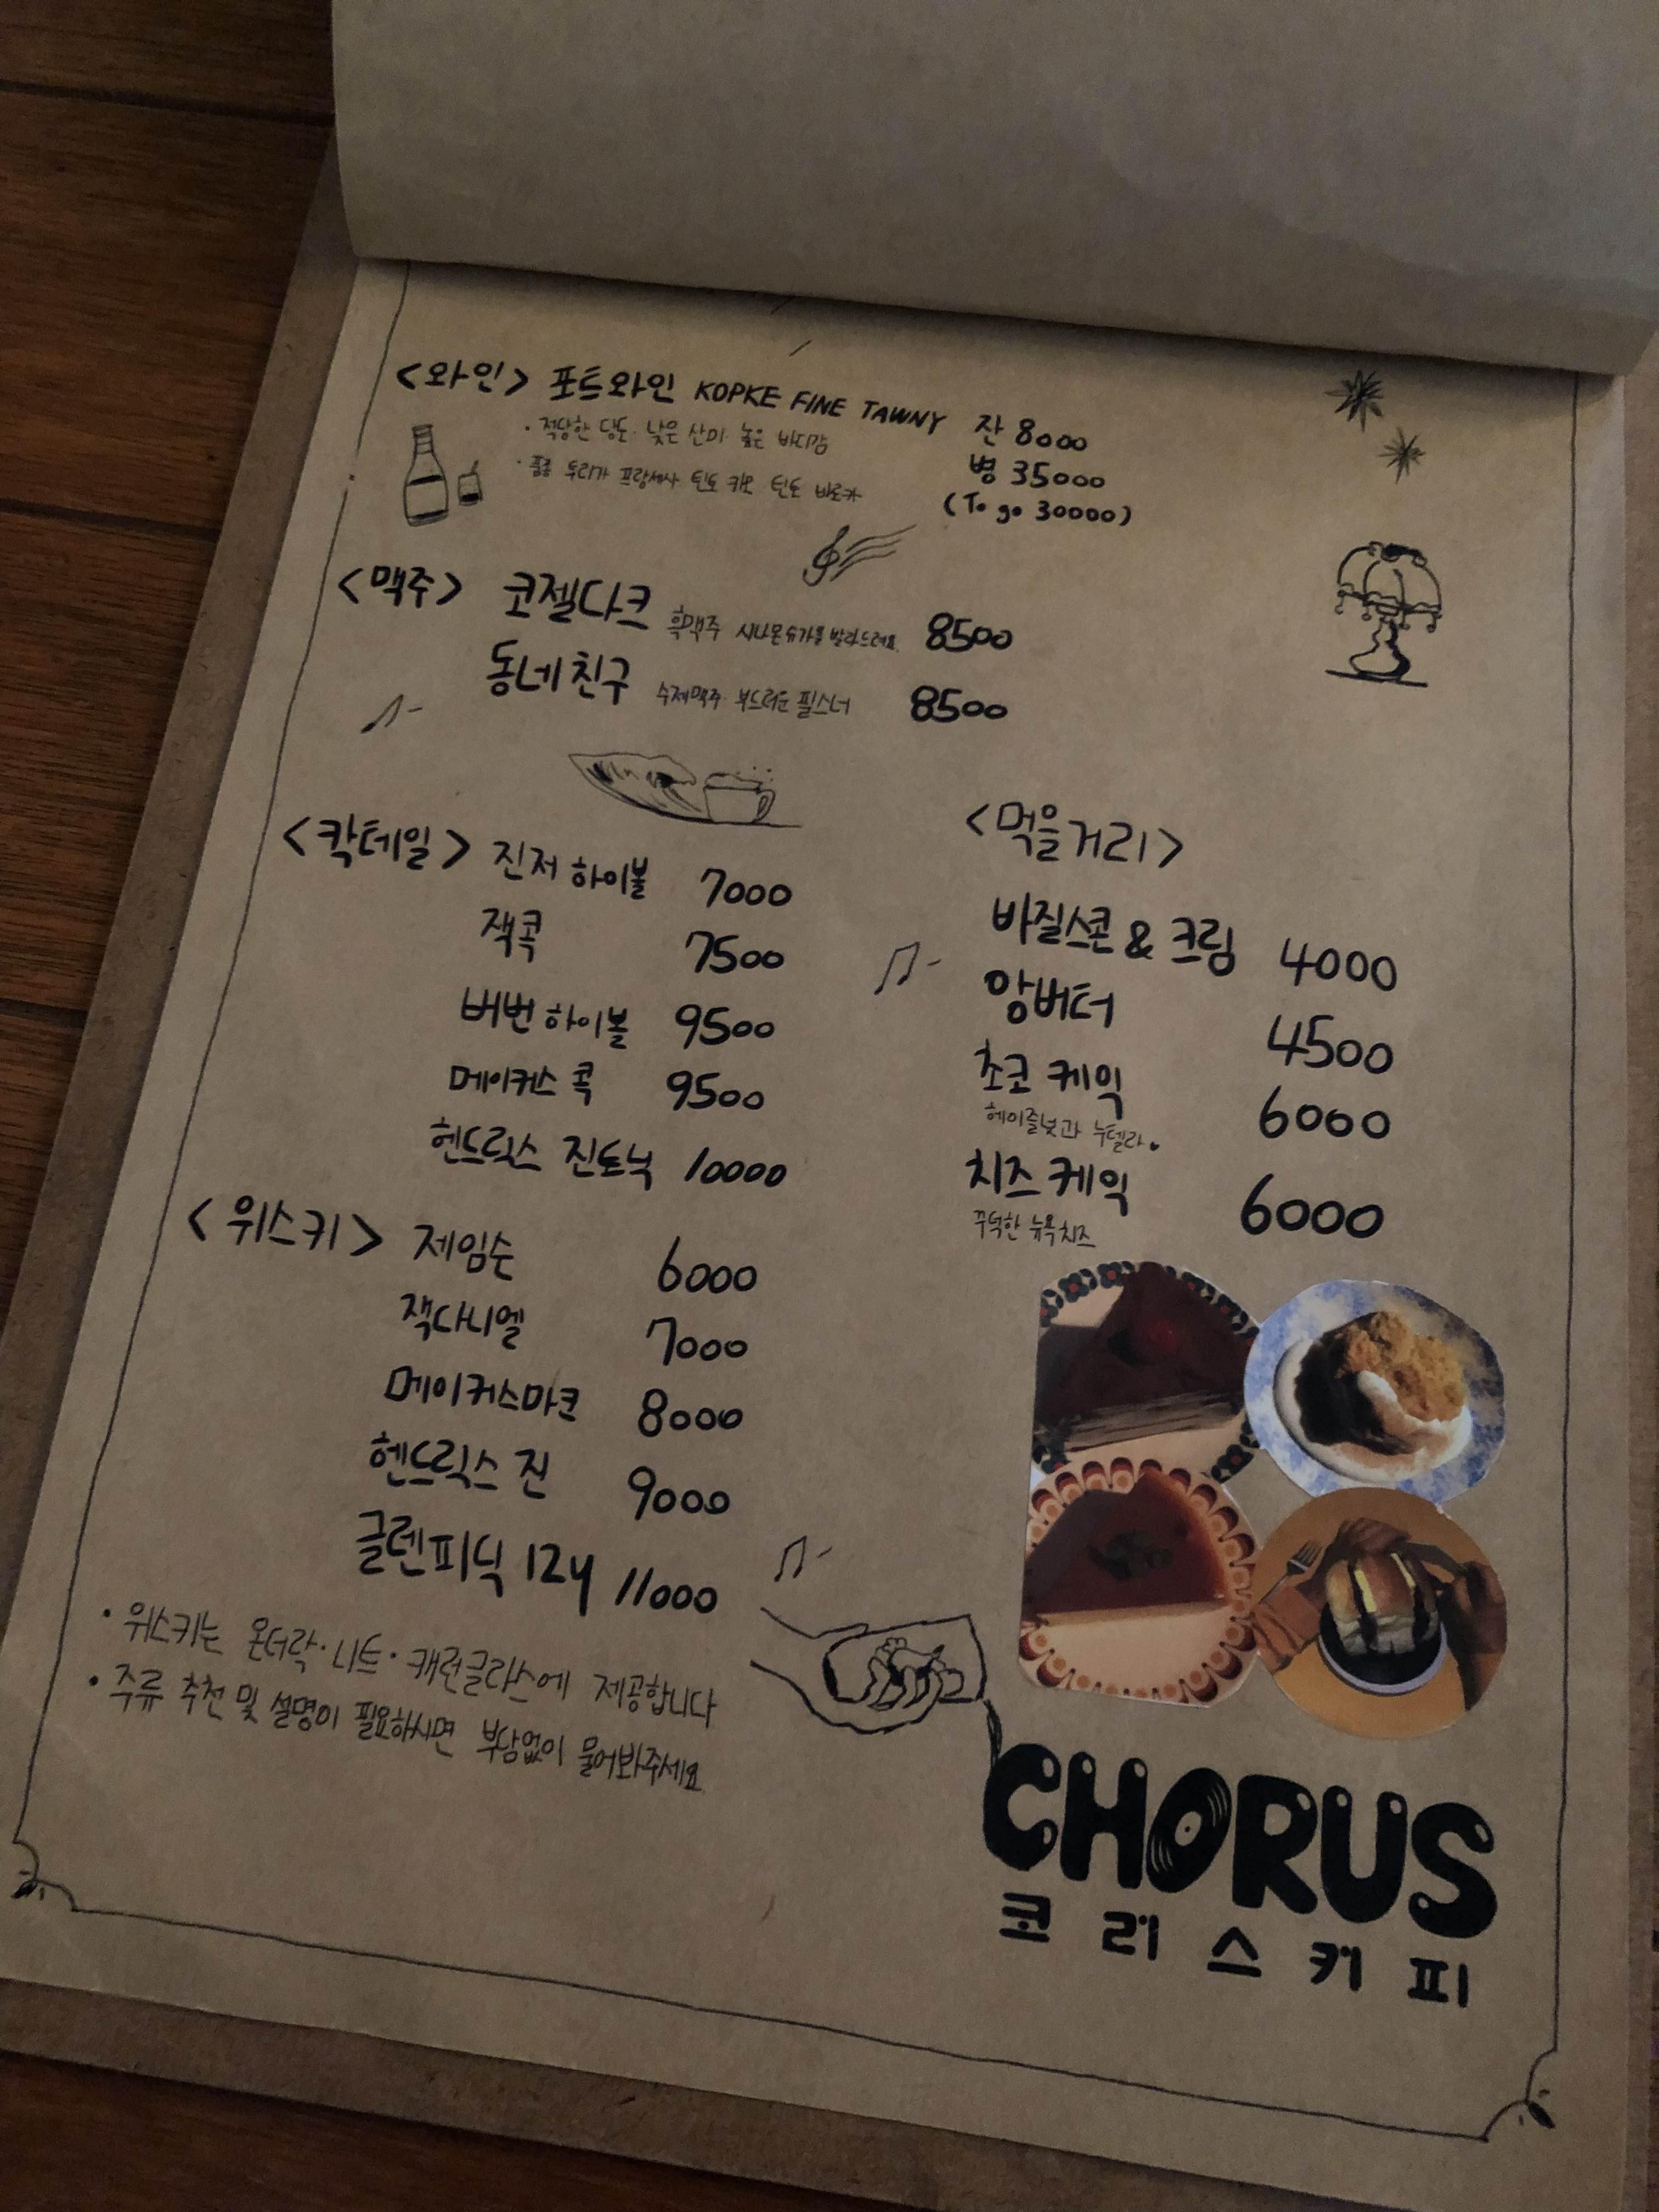 <와인> 포트와인 KOPKE FINE TAWNY 잔 8000
· 적당한 당도· 낮은 산미· 높은 바디감
병 35000
· 품종 투리가 프랑세사 틴토 카오 틴토 바로카
(To go 30000)
<맥주> 코젤다크 흑맥주 시나몬슈가를 발라드려요. 8500
동네친구 수제맥주· 부드러운 필스너 8500
<칵테일> 진저 하이볼 7000
잭콕 7500
버번 하이볼 9500
메이커스 콕 9500
헨드릭스 진토닉 10000
<위스키> 제임슨 6000
잭다니엘 7000
메이커스마크 8000
헨드릭스 진 9000
글렌피딕 12y 11000
· 위스키는 온더락· 니트· 캐런글라스에 제공합니다
· 주류 추천 및 설명이 필요하시면 부담없이 물어봐주세요
<먹을거리>
바질스콘 & 크림 4000
앙버터 4500
초코 케익 6000
헤이즐넛과 누텔라.
치즈 케익 6000
꾸덕한 뉴욕치즈
CHORUS
코러스커피